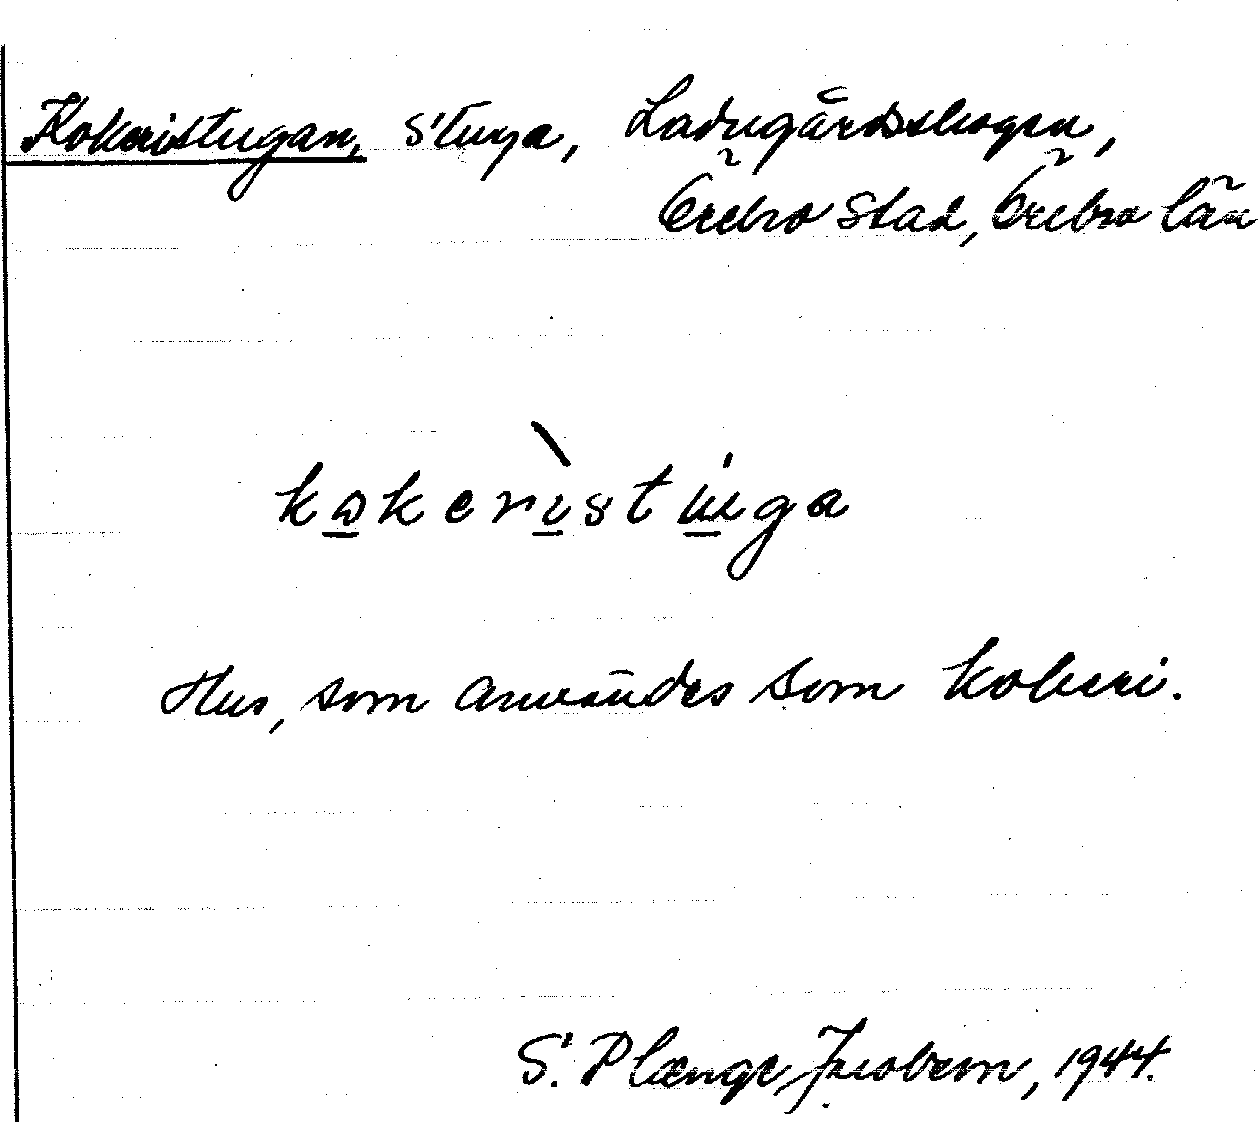 Kokeristugan, stuga, Ladugårdsskogen,
Örebro stad, Örebro län
kokerìstuga
Hus, som användes som kokeri.
S. Plænge Jacobson, 1944.